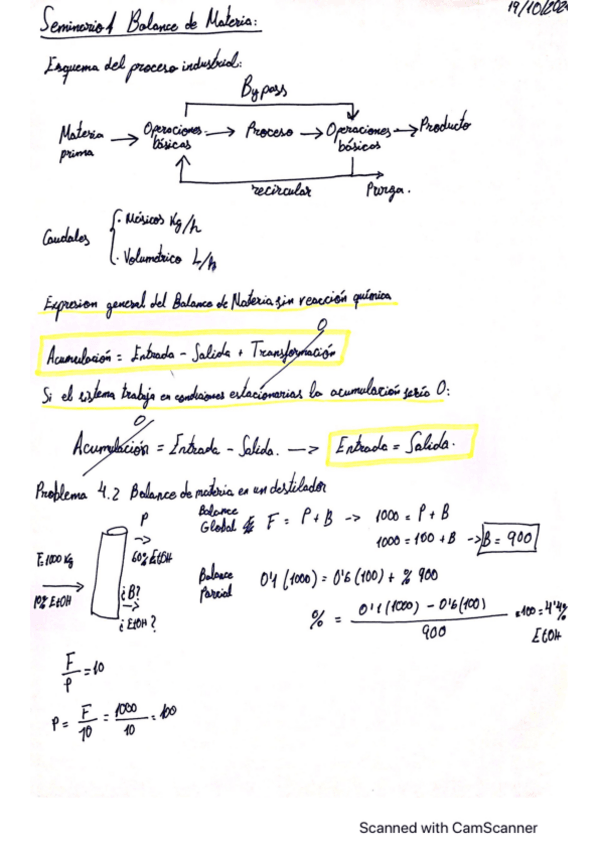 19/10/202
Seminario 1 Balance de Materia:
Esquema del proceso industrial:
Bypass
Materia prima → Operaciones básicas → Proceso → Operaciones básicas → Producto
recircular Purga.
Caudales
· Másicos Kg/h
· Volumétrico L/h
Expresion general del Balance de Materia sin reacción química
0
Acumulación = Entrada - Salida + Transformación
Si el sistema trabaja en condiciones estacionarias la acumulación sería 0:
0
Acumulación = Entrada - Salida. → Entrada = Salida.
Problema 4.2 Balance de materia en un destilador
P
60% EtOH
F=1000 Kg
10% EtOH
¿B?
¿EtOH?
Balance Global F = P + B → 1000 = P + B
1000 = 100 + B → B = 900
Balance Parcial 0'1 (1000) = 0'6 (100) + % 900
% = 0'1 (1000) - 0'6 (100) / 900 · 100 = 4'4% EtOH
F/P = 10
P = F/10 = 1000/10 = 100
Scanned with CamScanner